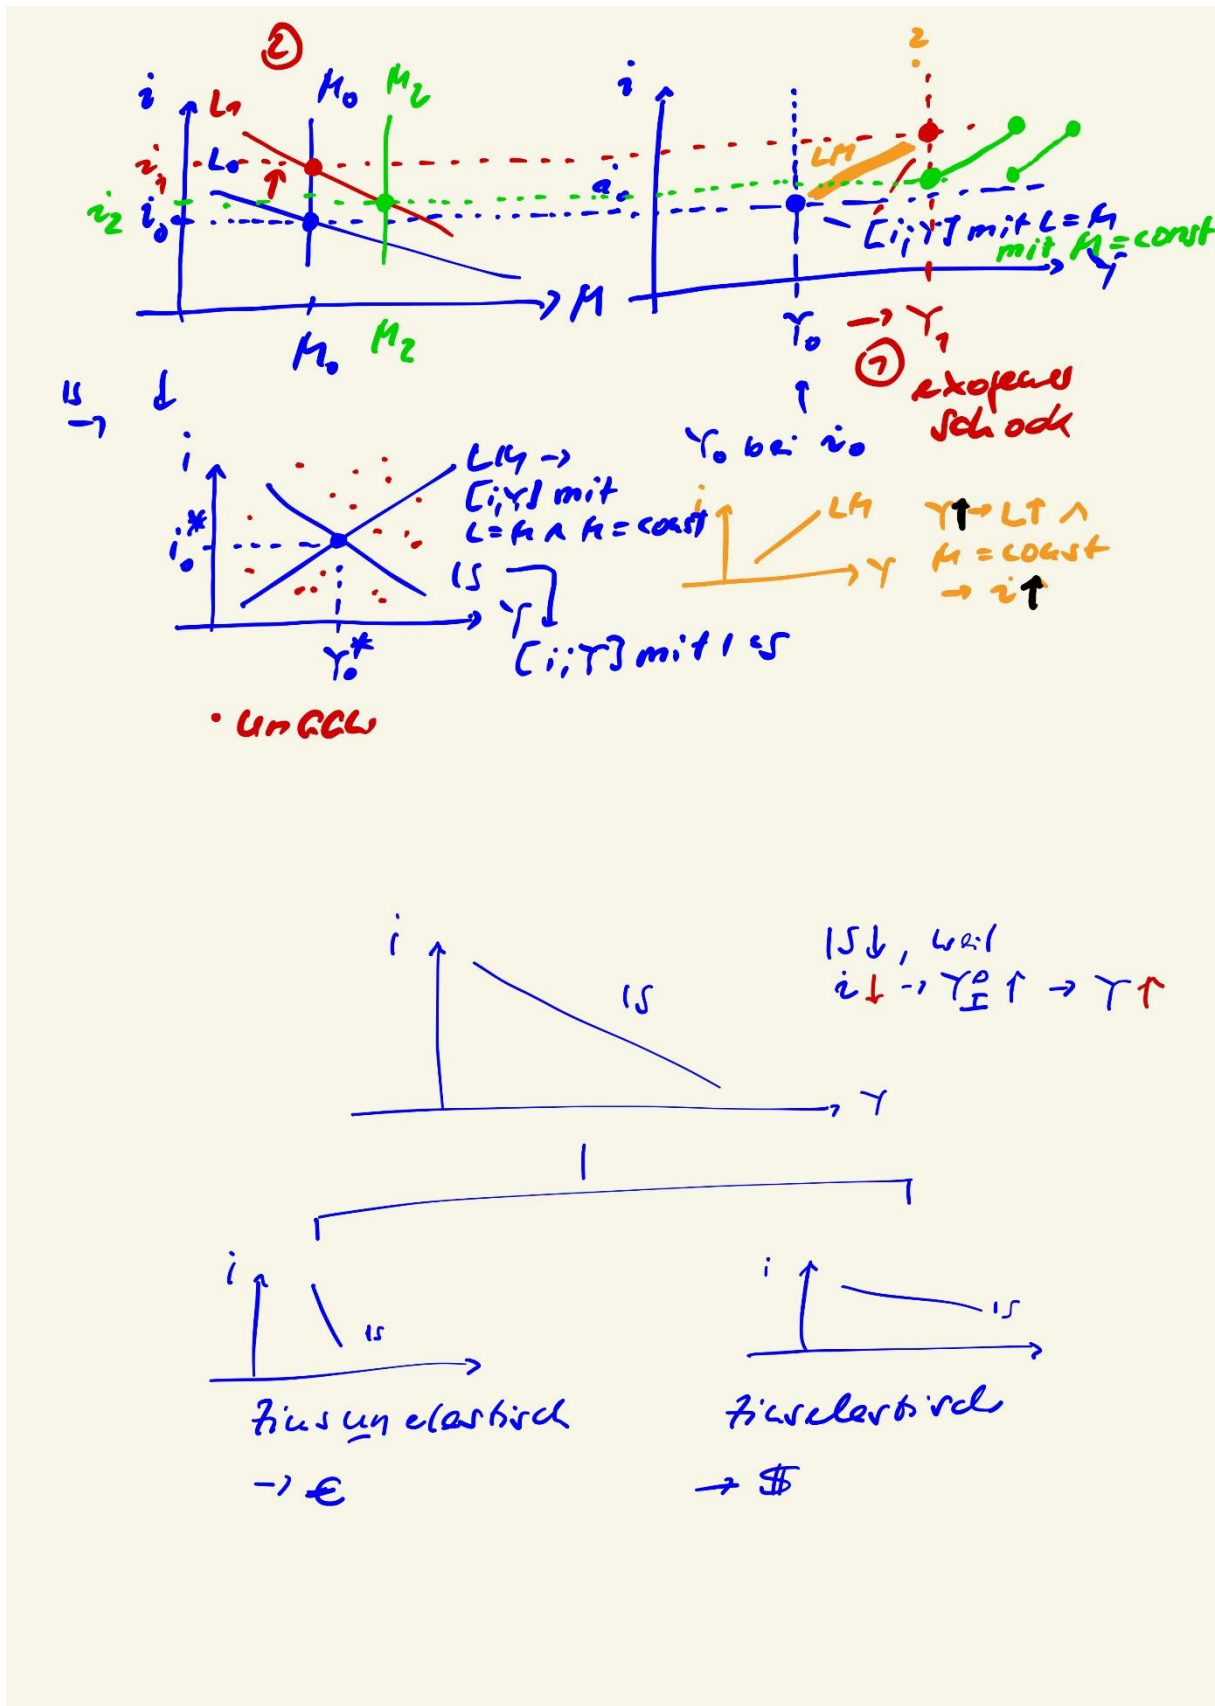 ②
i
L₁
M₀
M₂
i₁
L₀
i₂
i₀
M
M₀
M₂
i
2
LM
[i;Y] mit L = M
mit M = const
Y
Y₀ → Y₁
①
exogener
Schock
↑
Y₀ bei i₀
IS
→
↓
i
LM →
[i;Y] mit
L = M ∧ M = const
i₀*
IS
Y
Y₀*
[i;Y] mit I = S
i
LM
Y
Y↑ → L↑ ∧
M = const
→ i↑
• unGGW
i
IS
Y
IS↓, weil
i↓ → Yᴰ_I ↑ → Y↑
i
IS
Zinsunelastisch
→ €
i
IS
Zinselastisch
→ $